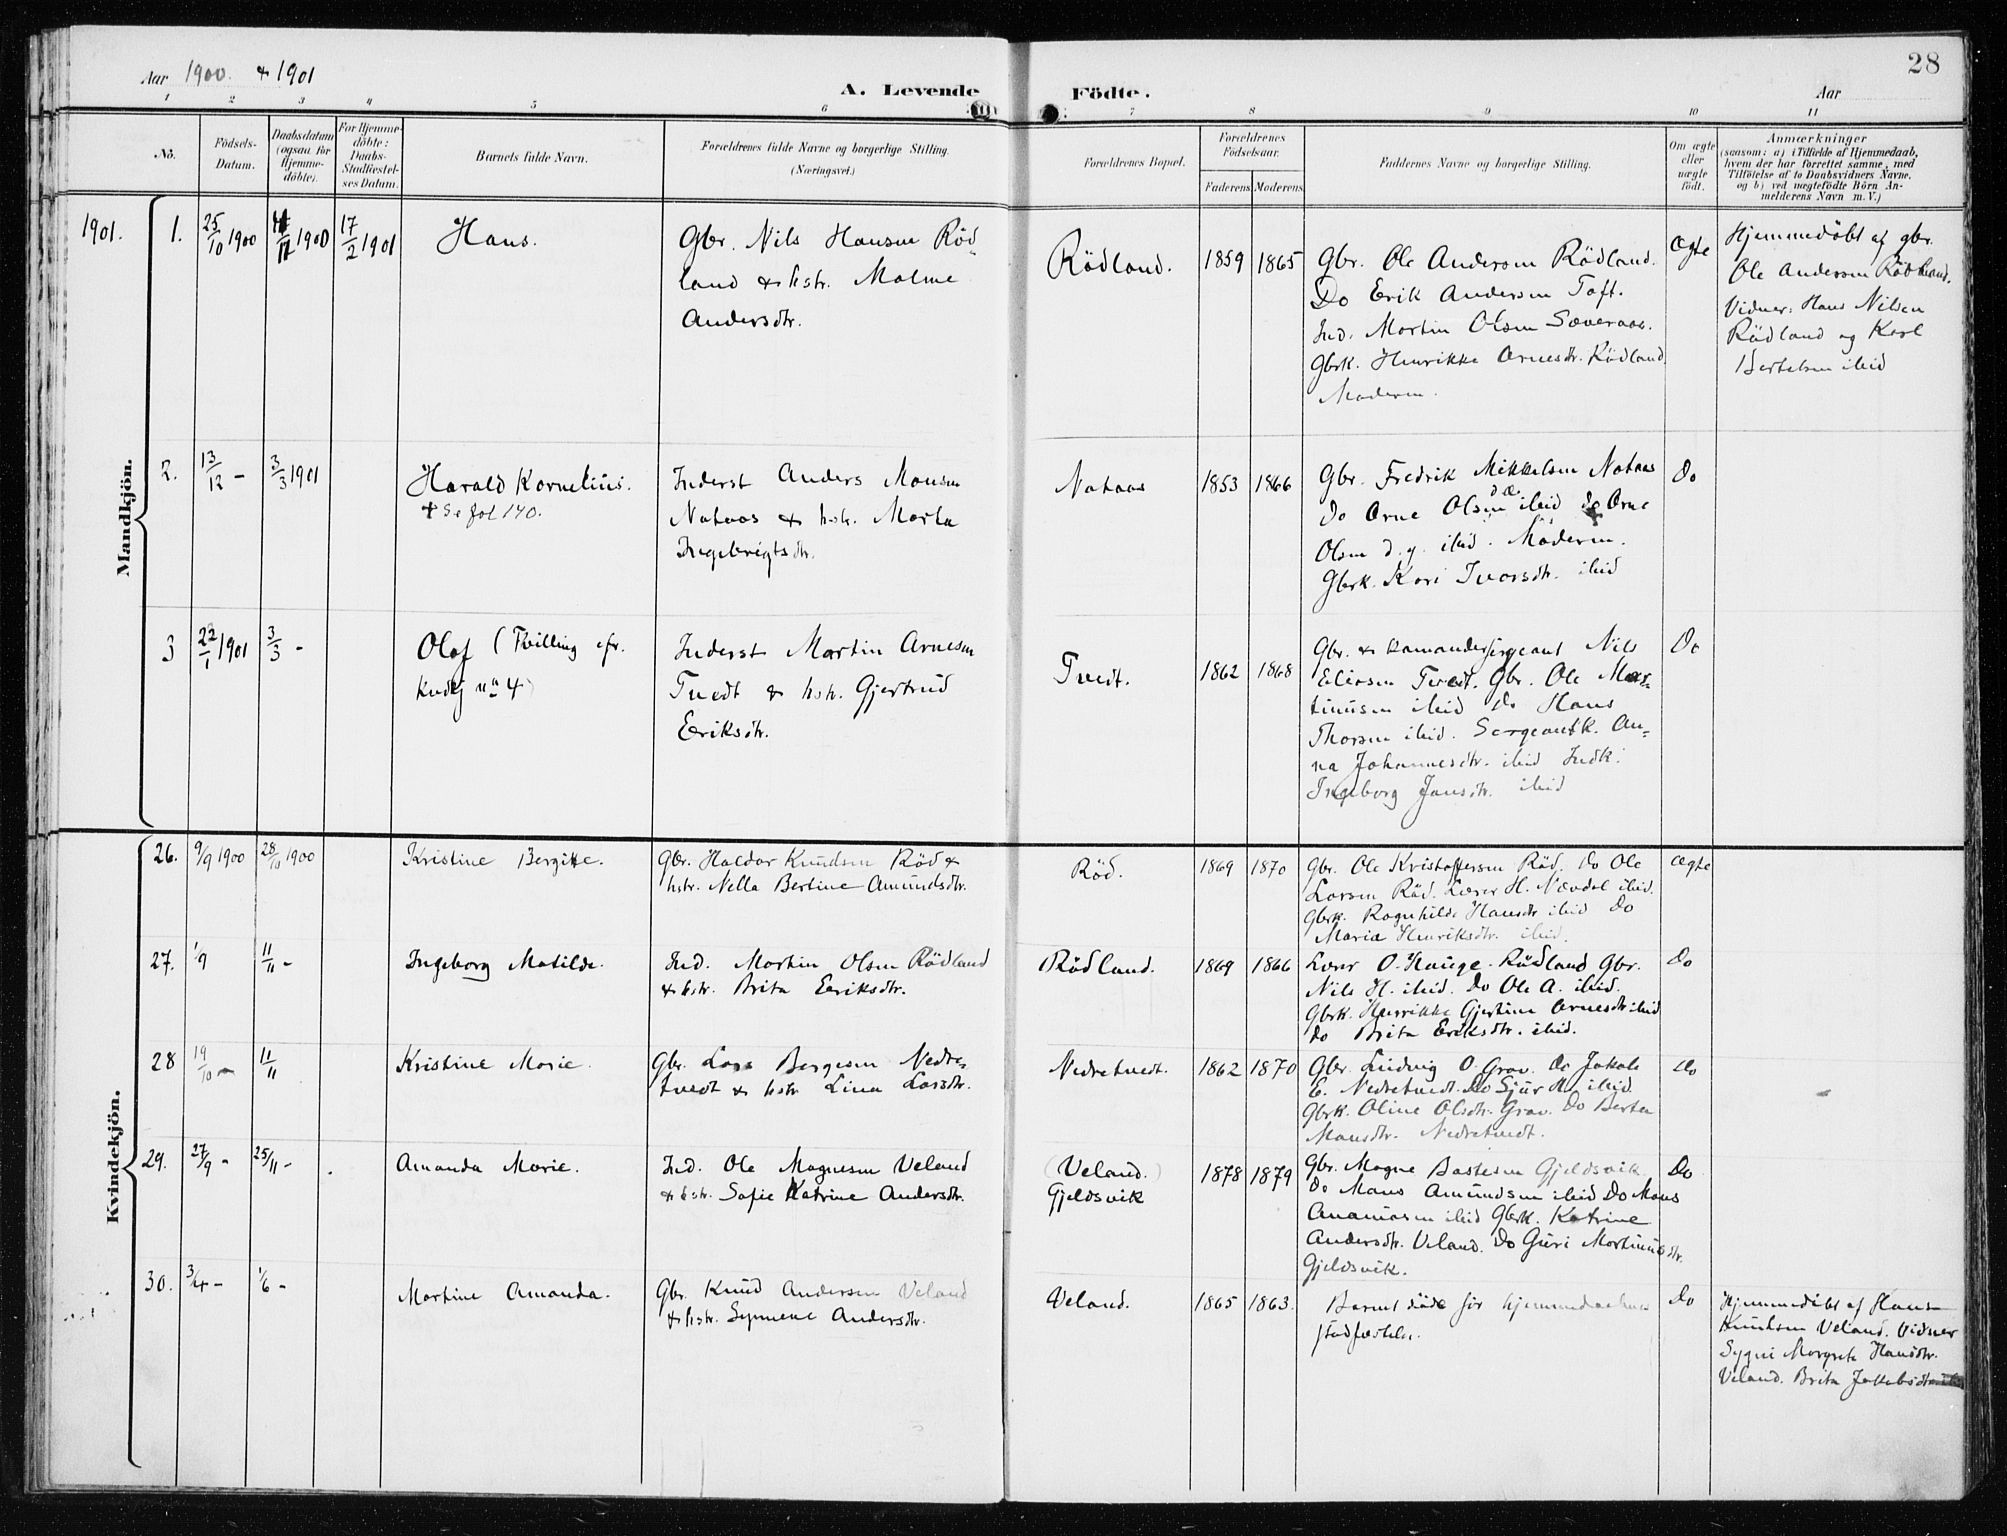 28
Aar 1900. & 1901
A. Levende Födte.
Aar
1 2 3 4 5 6 7 8 9 10 11
No.
Födsels-Datum.
Daabsdatum (ogsaa for Hjemme-döbte).
For Hjemme-döbte: Daabs-Stadfæstel-ses Datum.
Barnets fulde Navn.
Forældrenes fulde Navne og borgerlige Stilling. (Næringsvei.)
Forældrenes Bopæl.
Forældrenes Födselsaar.
Faderens Moderens
Faddernes Navne og borgerlige Stilling.
Om ægte eller uægte födt.
Anmærkninger
(saasom: a) i Tilfælde af Hjemmedaab,
hvem der har forrettet samme, med
Tilföielse af to Daabsvidners Navne.
og b) ved uægtefödte Börn An-
melderens Navn m. V.)
Mandkjön.
1901. 1. 25/10 1900 1900 17/2 1901
Hans.
Gbr. Nils Hansen Röd-
land & hstr. Malene
Andersdtr.
Rödland. 1859 1865
Gbr. Ole Andersen Rödland.
Do Erik Andersen Toft.
Ind. Martin Olsen Sæveraas.
Gbrk. Henrikke Arnesdtr. Rödland
Moderen.
Ægte
Hjemmedöbt af gbr.
Ole Andersen Rödland.
Vidner: Hans Nilsen
Rödland og Karl
Bertelsen ibid
2. 13/12 - 3/3 1901
Harald Kornelius.
+ Se fol 140.
Inderst Anders Monsen
Nataas & hstr. Marta
Ingebrigtsdtr.
Nataas 1853 1866
Gbr. Fredrik Mikkelsen Nataas
do Arne Olsen d æ. ibid do Arne
Olsen d. y. ibid. Moderen.
Gbrk. Kari Ivarsdtr. ibid
Do
3 22/1 1901 3/3 -
Olaf (Tvilling cfr.
Kvdkj no 4)
Inderst Martin Arnesen
Tvedt & hstr. Gjertrud
Eriksdtr.
Tvedt. 1862 1868
Gbr. & Komandersergeant Nils
Eliasen Tvedt. Gbr. Ole Mar-
tinusen ibid Do Hans
Thorsen ibid. Sergeantk. An-
na Johannesdtr. ibid Indk.
Ingeborg Jansdtr. ibid
Do
Kvindekjön.
26. 9/9 1900 28/10 1900
Kristine Bergitte.
Gbr. Haldor Knudsen Röd &
hstr. Nella Bertine Amundsdtr.
Röd. 1869 1870
Gbr. Ole Kristoffersen Röd. Do Ole
Larsen Röd. Lærer H. Nævdal ibid.
Gbrk. Ragnhilde Hansdtr ibid Do
Maria Henriksdtr. ibid.
Ægte
27. 1/9 11/11 -
Ingeborg Matilde.
Ind. Martin Olsen Rödland
& hstr. Brita Eriksdtr.
Rödland. 1869 1866
Lærer O. Hauge. Rödland Gbr.
Nils H. ibid. Do Ole A. ibid.
Gbrk. Henrikke Gjertine Arnesdtr ibid
Do Brita Eriksdtr. ibid.
Do
28 19/10 - 11/11
Kristine Marie.
Gbr. Lars Bergesen Nedre-
tvedt & hstr Lina Larsdtr.
Nedretvedt. 1862 1870
Gbr. Ludvig O. Grav. Do Jakob
E. Nedretvedt. Do Sjur ibid.
Gbrk. Oline Olsdtr. Grav. Do Berta
Monsdtr. Nedretvedt.
Do
29. 27/9 - 25/11 -
Amanda Marie.
Ind. Ole Magnesen Veland
& hstr. Sofie Katrine Andersdtr.
(Veland.)
Gjeldsvik
1878 1879
Gbr. Magne Bastesen Gjeldsvik
Do Mons Amundsen ibid Do Mons
Ananiasen ibid Gbrk. Katrine
Andersdtr. Veland. Do Guri Martinusdtr.
Gjeldsvik.
Do
30. 3/4 - 1/6 -
Martine Amanda.
Gbr. Knud Andersen Veland
& hstr. Synneve Andersdtr.
Veland. 1865 1863.
Barnet döde för hjemmedaaben
stadfæstedes.
Do
Hjemmedöbt af Hans
Knudsen Veland. Vidner
Sygni Margreta Hansdtr.
Veland. Brita Jakobsdtr